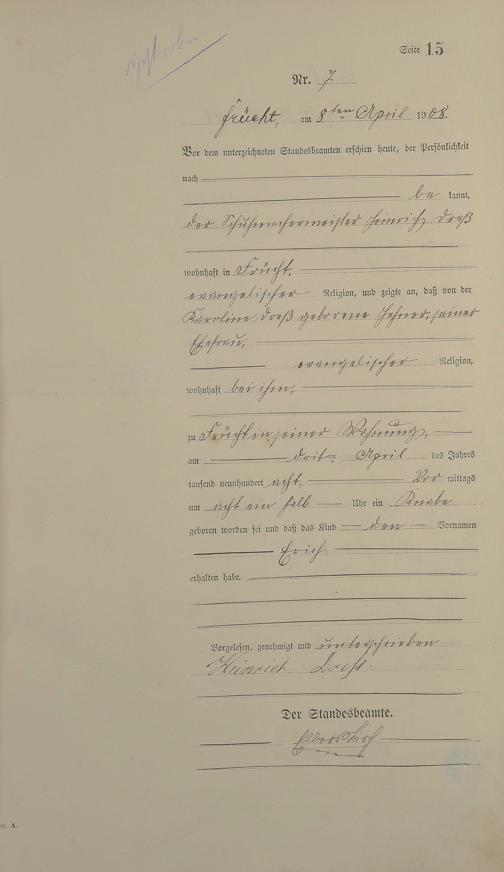 Seite 15
Nr. 7
Frücht, am 8ten April 1908.
Vor dem unterzeichneten Standesbeamten erschien heute, der Persönlichkeit
nach
be kannt,
der Schuhmachermeister Heinrich Dreß
wohnhaft in Frücht.
evangelischer Religion, und zeigte an, daß von der
Karoline Dreß geborene seiner
Ehefrau,
evangelischer Religion,
wohnhaft bei ihm,
zu Frücht in seiner Wohnung,
am drit= April des Jahres
tausend neunhundert acht, Vor mittags
um acht ein halb Uhr ein Knabe
geboren worden sei und daß das Kind den Vornamen
Erich
erhalten habe.
Vorgelesen, genehmigt und unterschrieben
Heinrich Dreß.
Der Standesbeamte.